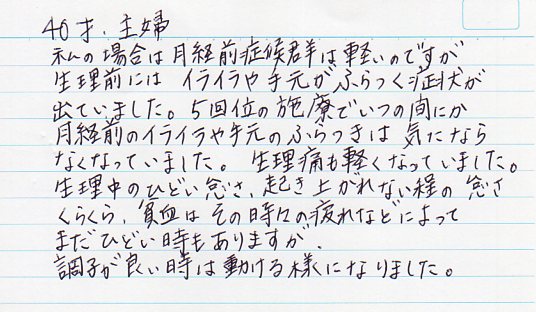 40才、主婦
私の場合は月経前症候群は軽いのですが
生理前には イライラや手元がふらつく症状が
出ていました。5回位の施療でいつの間にか
月経前のイライラや手元のふらつきは 気になら
なくなっていました。 生理痛も軽くなっていました。
生理中のひどい怠さ、起き上がれない程の 怠さ
くらくら、貧血は その時々の疲れなどによって
まだひどい時もありますが、
調子が良い時は動ける様になりました。